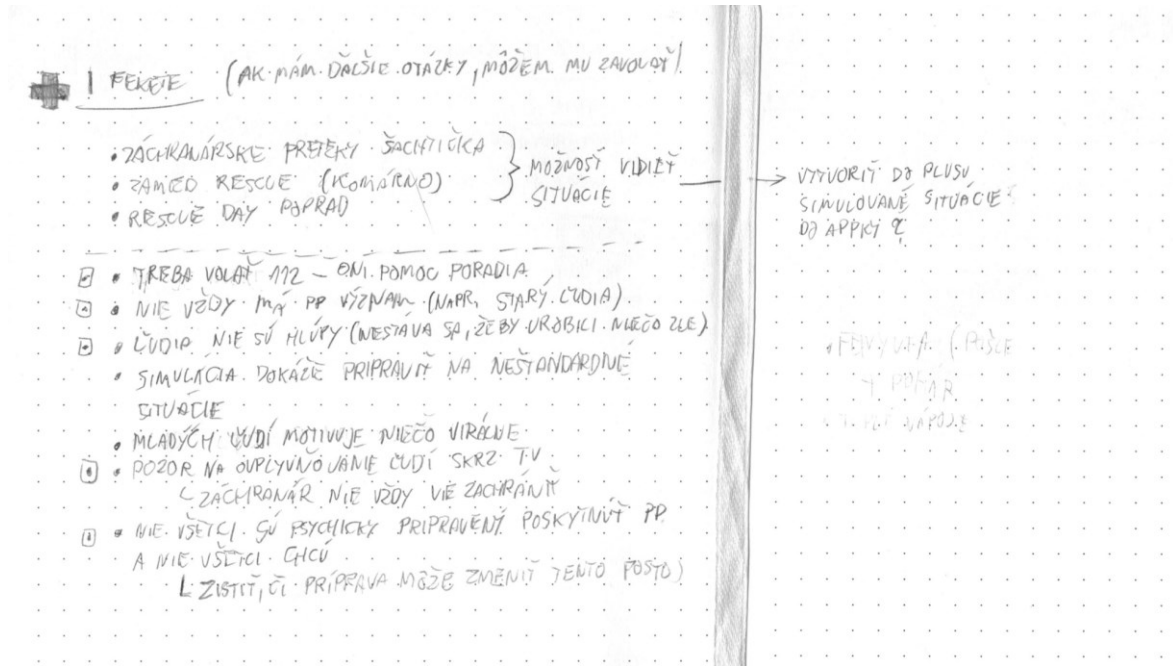 1 FEKETE (AK MÁM ĎALŠIE OTÁZKY, MÔŽEM MU ZAVOLAŤ)
• ZÁCHRANÁRSKE PRETEKY ŠACHTIČKA
• ZAMED RESCUE (KOMÁRNO)
• RESCUE DAY POPRAD
MOŽNOSŤ VIDIEŤ
SITUÁCIE
VYTVORIŤ DO PLUSU
SIMULOVANÉ SITUÁCIE
DO APPKY ?
• TREBA VOLAŤ 112 – ONI POMOC PORADIA
• NIE VŽDY MÁ PP VÝZNAM (NAPR. STARÝ ĽUDIA)
• ĽUDIA NIE SÚ HLÚPY (NESTÁVA SA, ŽE BY UROBILI NIEČO ZLE)
• SIMULÁCIA DOKÁŽE PRIPRAVIŤ NA NEŠTANDARDNÉ
SITUÁCIE
• MLADÝCH ĽUDÍ MOTIVUJE NIEČO VIRÁLNE
• POZOR NA OVPLYVŇOVANIE ĽUDÍ SKRZ TV
ZÁCHRANÁR NIE VŽDY VIE ZACHRÁNIŤ
• NIE VŠETCI SÚ PSYCHICKY PRIPRAVENÝ POSKYTNÚŤ PP
A NIE VŠETCI CHCÚ
ZISTIŤ, ČI PRÍPRAVA MÔŽE ZMENIŤ TENTO POSTOJ